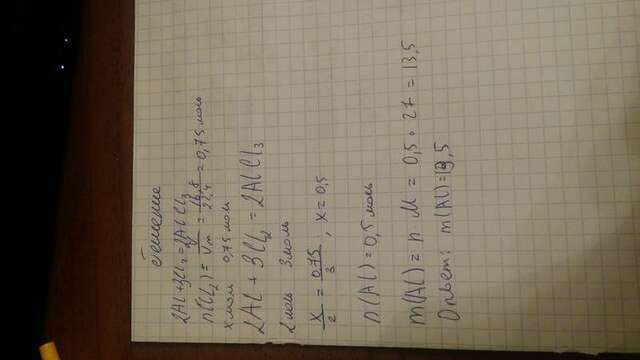 Решение
2Al+3Cl₂=2AlCl₃
n(Cl₂)= V/Vm = 16,8/22,4 =0,75 моль
x моль 0,75 моль
2Al + 3Cl₂ = 2AlCl₃
2 моль 3 моль
x/2 = 0,75/3 , x=0,5
n(Al)=0,5 моль
m(Al)= n M = 0,5 · 27 = 13,5
Ответ: m(Al)=13,5